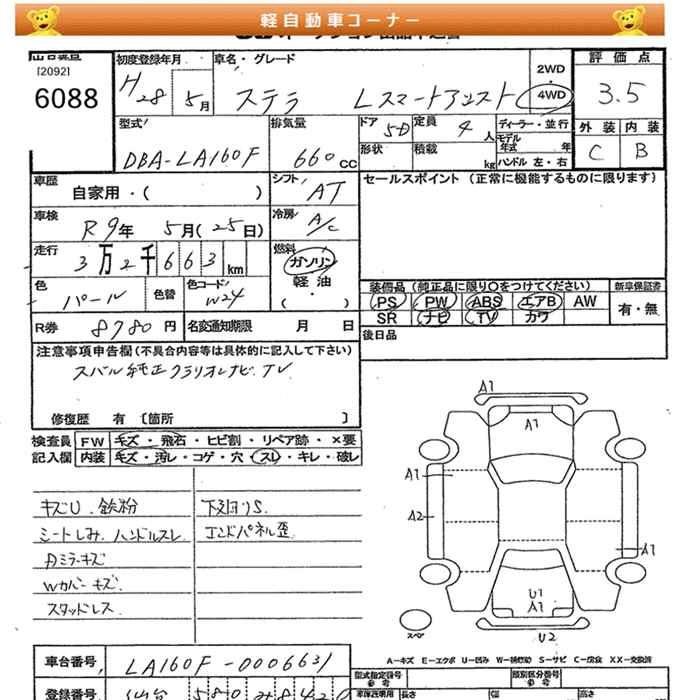 軽自動車コーナー
[2092]
6088
初度登録年月 車名・グレード 2WD・4WD 評価点
H28 5月 ステラ Lスマートアシスト 3.5
型式 排気量 ドア 5D 定員 4人 ディーラー・並行 外装 内装
DBA-LA160F 660cc 形状 積載 kg モデル年式 年 ハンドル 左・右 C B
車歴 自家用・( ) シフト AT セールスポイント (正常に機能するものに限ります)
車検 R9年 5月(25日) 冷房 A/C
走行 3万2千663km 燃料 ガソリン・軽油・( )
色 パール 色替 色コード W24
装備品 (純正品に限り○をつけてください) 新車保証書
PS PW ABS エアB AW 有・無
SR ナビ TV カワ
R券 8780円 名変通知期限 月 日 後日品
注意事項申告欄 (不具合内容等は具体的に記入して下さい)
スバル純正クラリオンナビ.TV
修復歴 有 〔箇所 〕
検査員 FW キズ・飛石・ヒビ割・リペア跡・×要
記入欄 内装 キズ・汚レ・コゲ・穴・スレ・キレ・破レ
キズU.鉄粉 下廻りS
シートしみ.ハンドルスレ エンドパネル歪
Aミラーキズ
Wカバーキズ
スタッドレス
A1
A1
A1
A2
A1
U1
A1
U2
スペア
A−キズ E−エクボ U−凹み W−補修跡 S−サビ C−腐食 XX−交換済
車台番号 LA160F-0006631 型式指定番号 類別区分番号
登録番号 仙台 580 車体説明用 長さ 幅 高さ